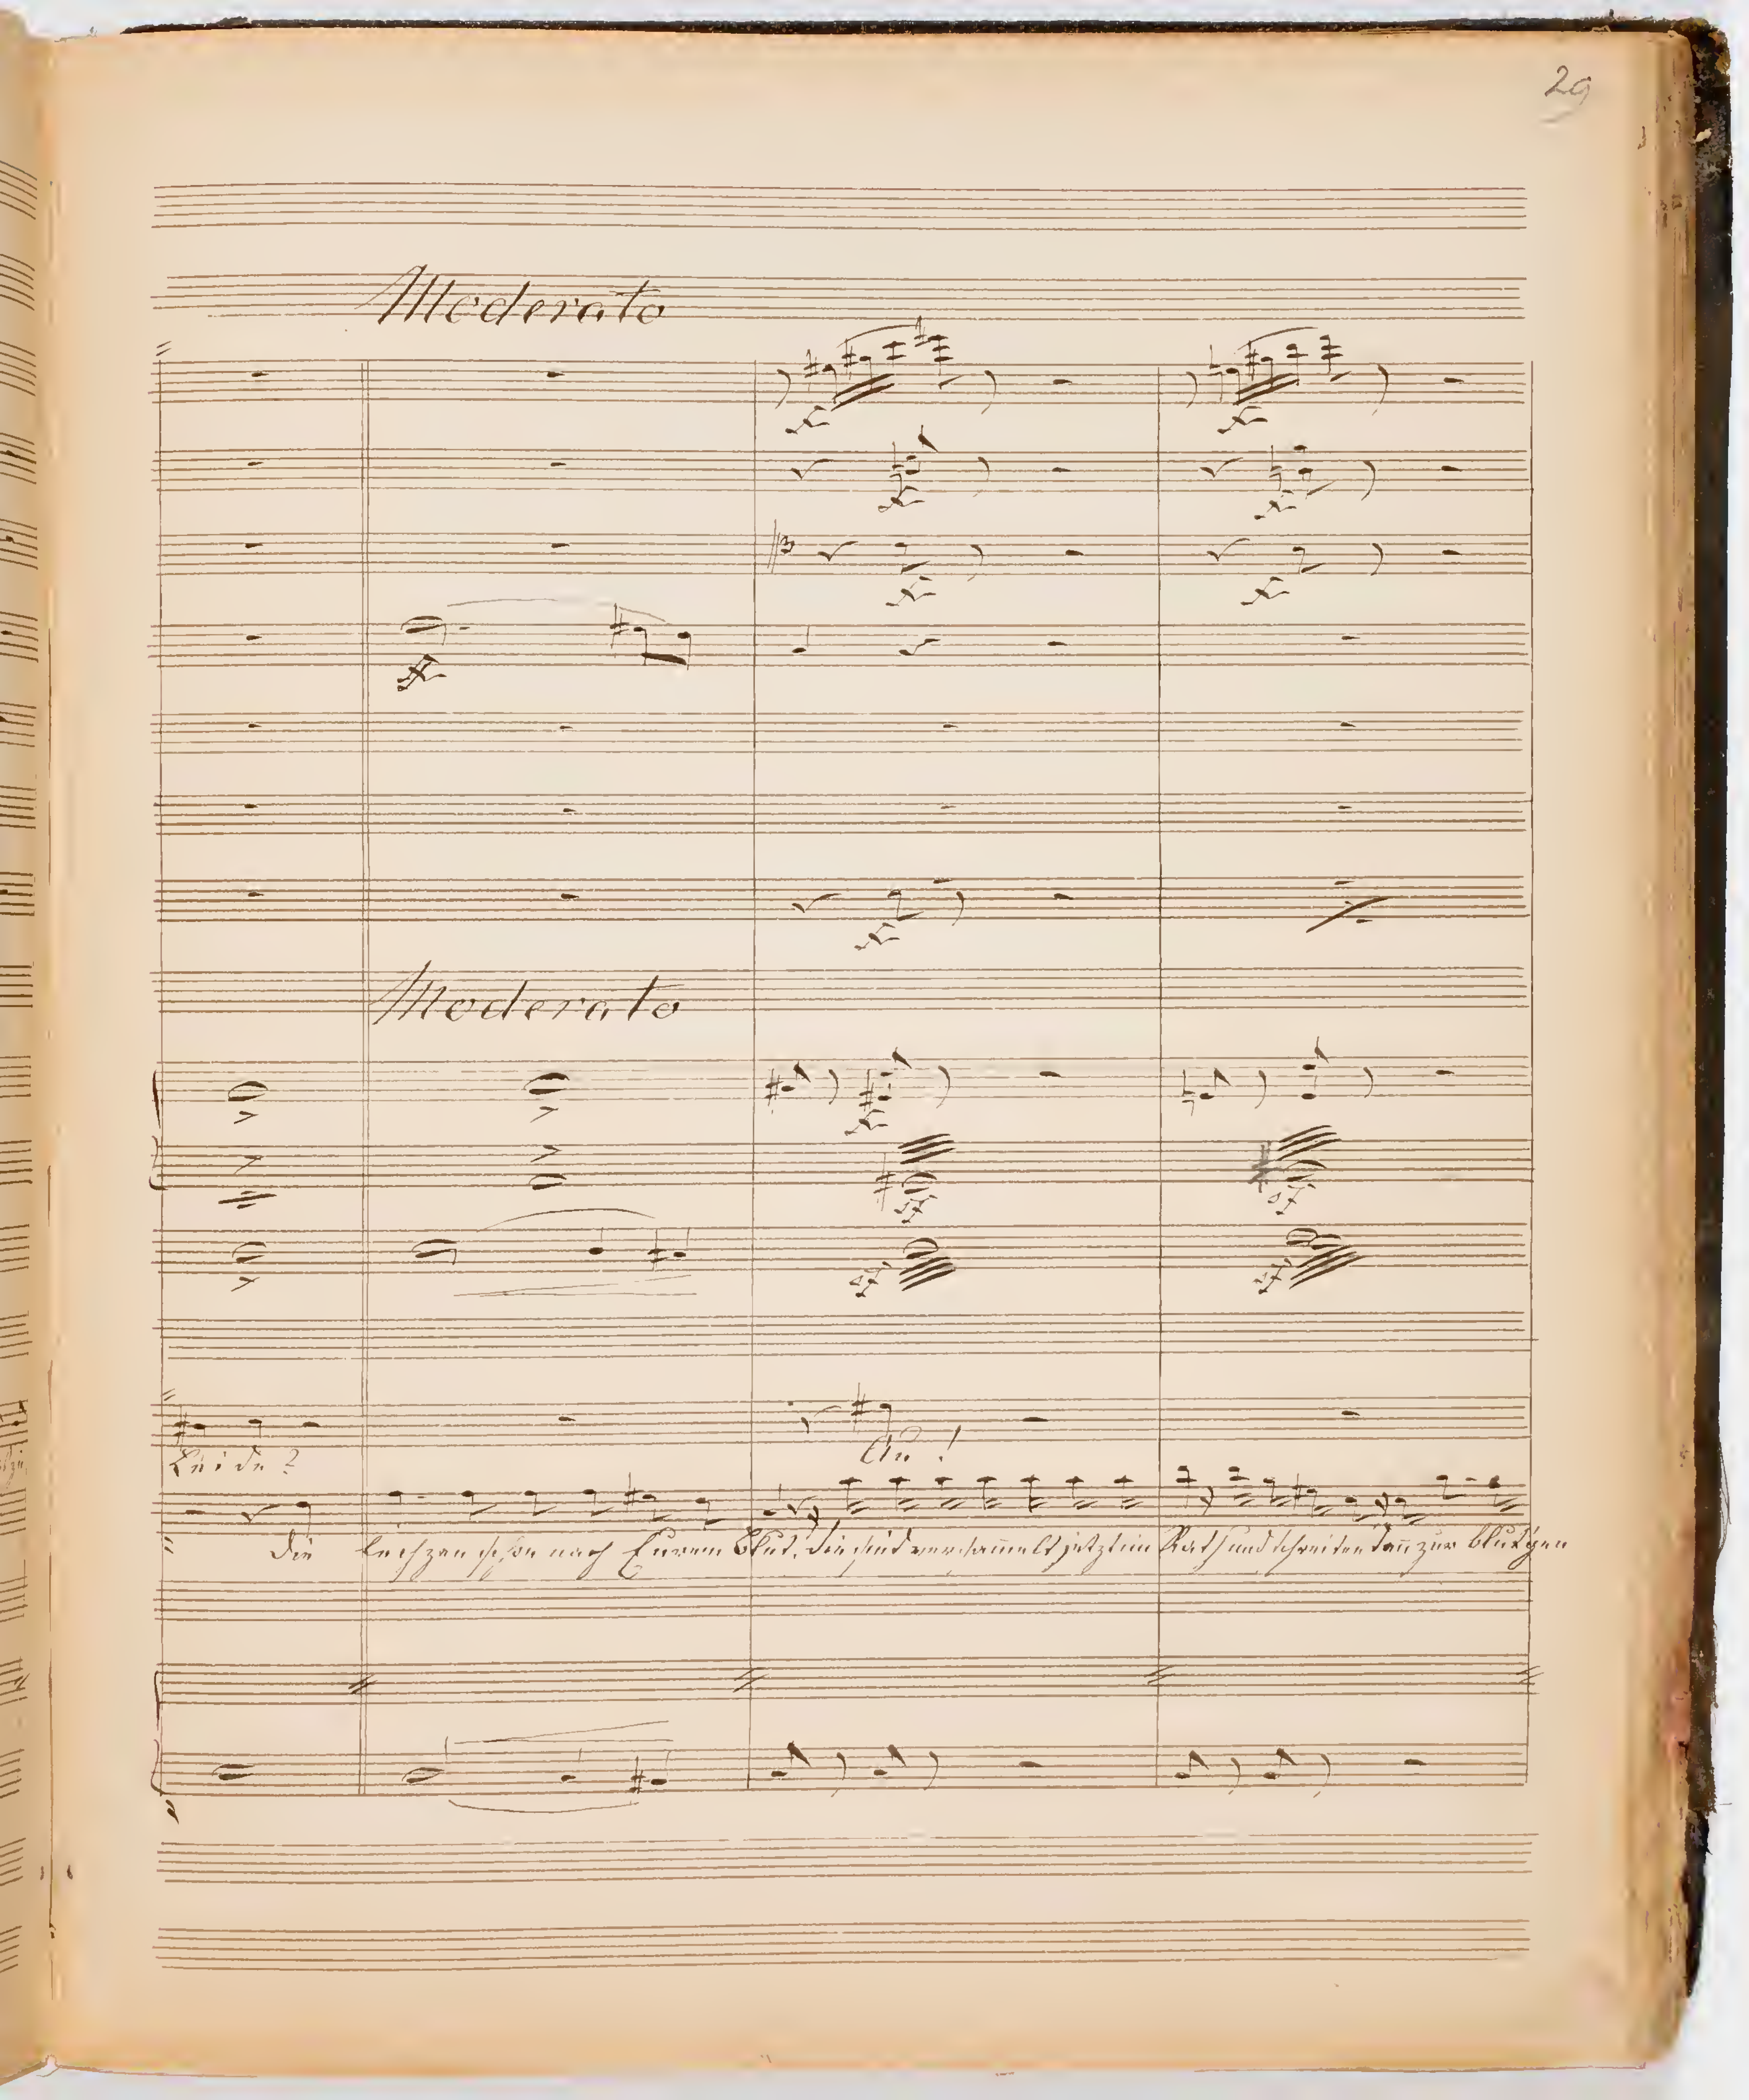 29
Moderato
Moderato
Beide?
Au!
die lechzen schon nach Eurem Blut, die sind versam̄elt jetzt im Rath und schreiten dan̄ zur blut'gen